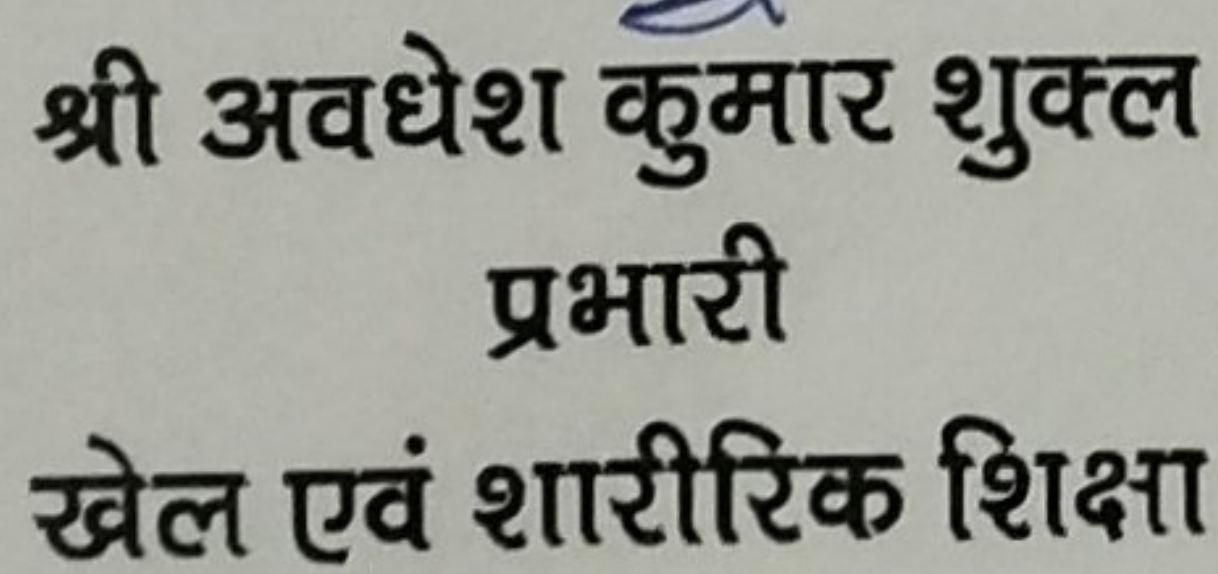 श्री अवधेश कुमार शुक्ल
प्रभारी
खेल एवं शारीरिक शिक्षा